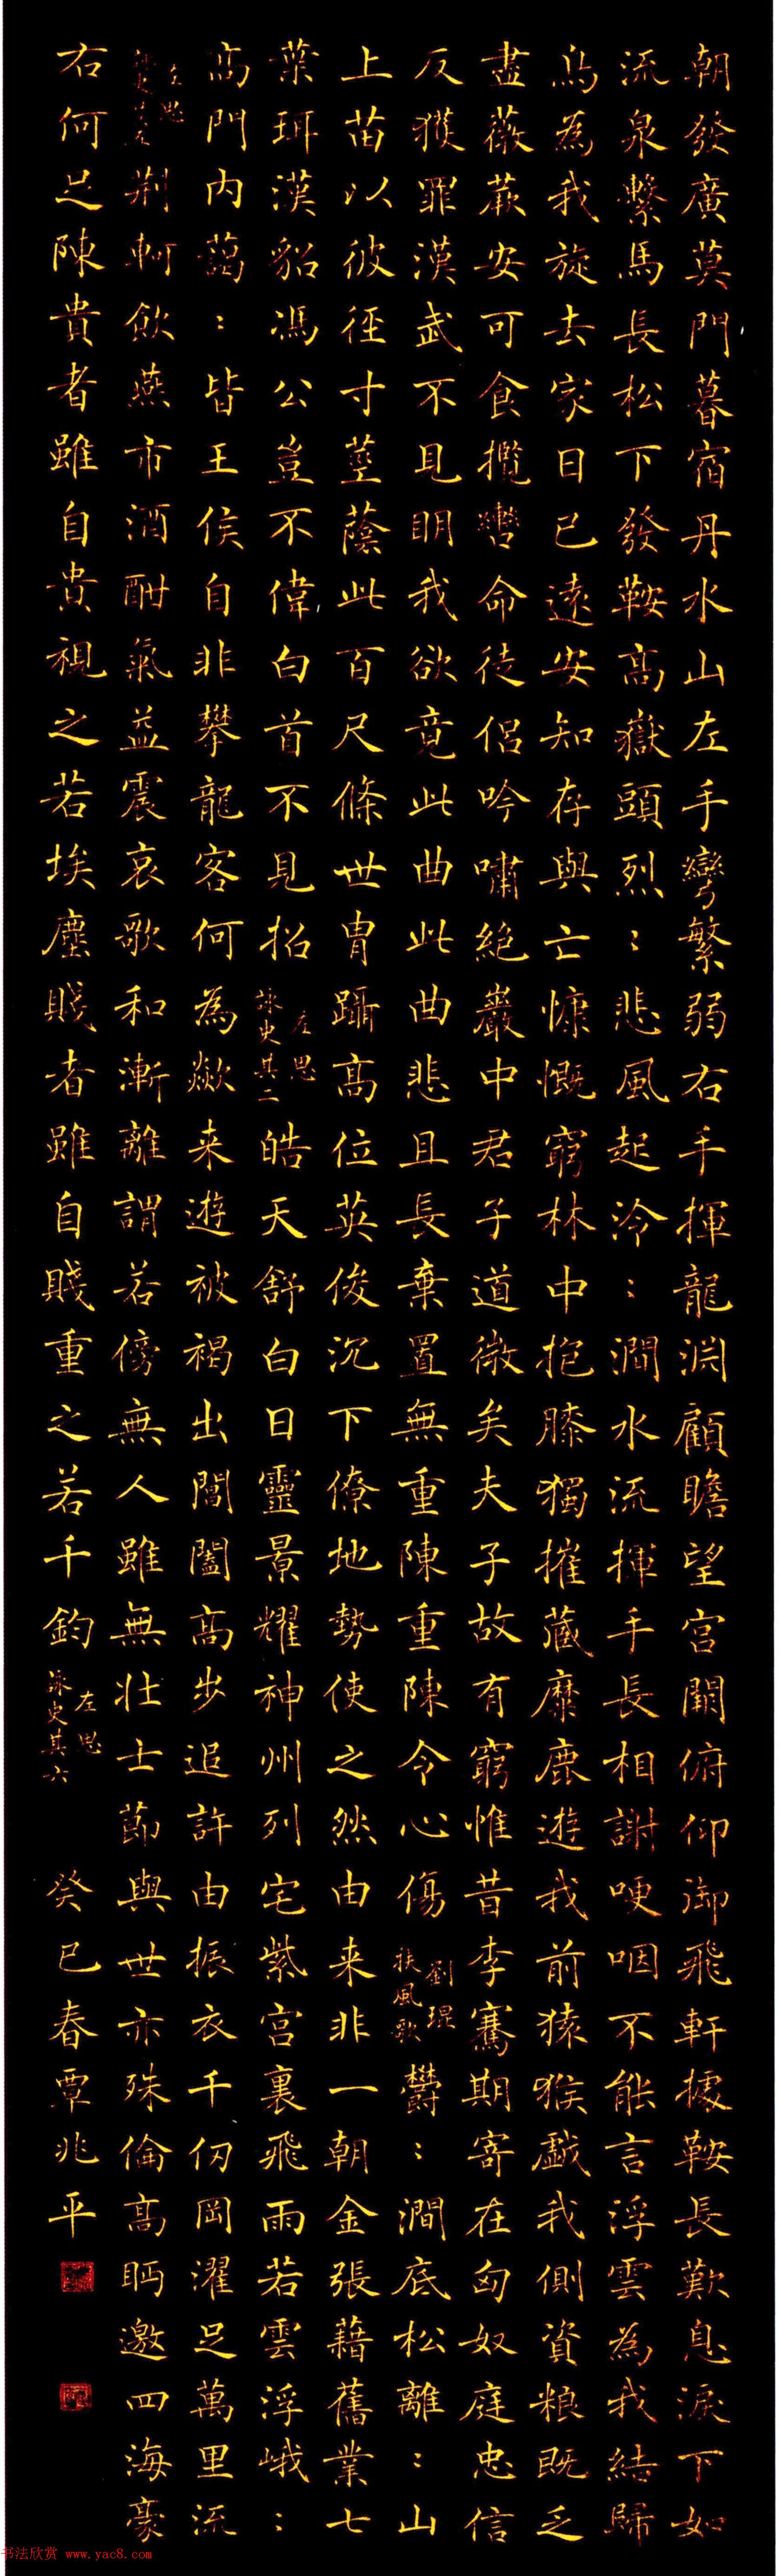 朝發廣莫門暮宿丹水山左手彎繁弱右手揮龍淵顧瞻望宮闕俯仰御飛軒據鞍長歎息淚下如
流泉繫馬長松下發鞍高嶽頭烈〻悲風起泠〻澗水流揮手長相謝哽咽不能言浮雲為我結歸
鳥為我旋去家日已遠安知存與亡慷慨窮林中抱膝獨摧藏麋鹿遊我前猿猴戲我側資粮既乏
盡薇蕨安可食攬轡命徒侶吟嘯絕巖中君子道微矣夫子故有窮惟昔李騫期寄在匈奴庭忠信
反獲罪漢武不見明我欲竟此曲此曲悲且長棄置無重陳重陳令心傷 劉琨 扶風歌 鬱〻澗底松離〻山
上苗以彼徑寸莖蔭此百尺條世胄躡高位英俊沉下僚地勢使之然由来非一朝金張藉舊業七
葉珥漢貂馮公豈不偉白首不見招 左思 詠史其二 皓天舒白日靈景耀神州列宅紫宮裏飛雨若雲浮峨〻
高門內藹〻皆王侯自非攀龍客何為歘来遊被褐出閶闔高步追許由振衣千仞岡濯足萬里流
左思 詠史其五 荆軻飲燕市酒酣氣益震哀歌和漸離謂若傍無人雖無壮士節與世亦殊倫高眄邀四海豪
右何足陳貴者雖自貴視之若埃塵賤者雖自賤重之若千鈞 左思 詠史其六 癸巳春覃兆平
书法欣赏 www.yac8.com